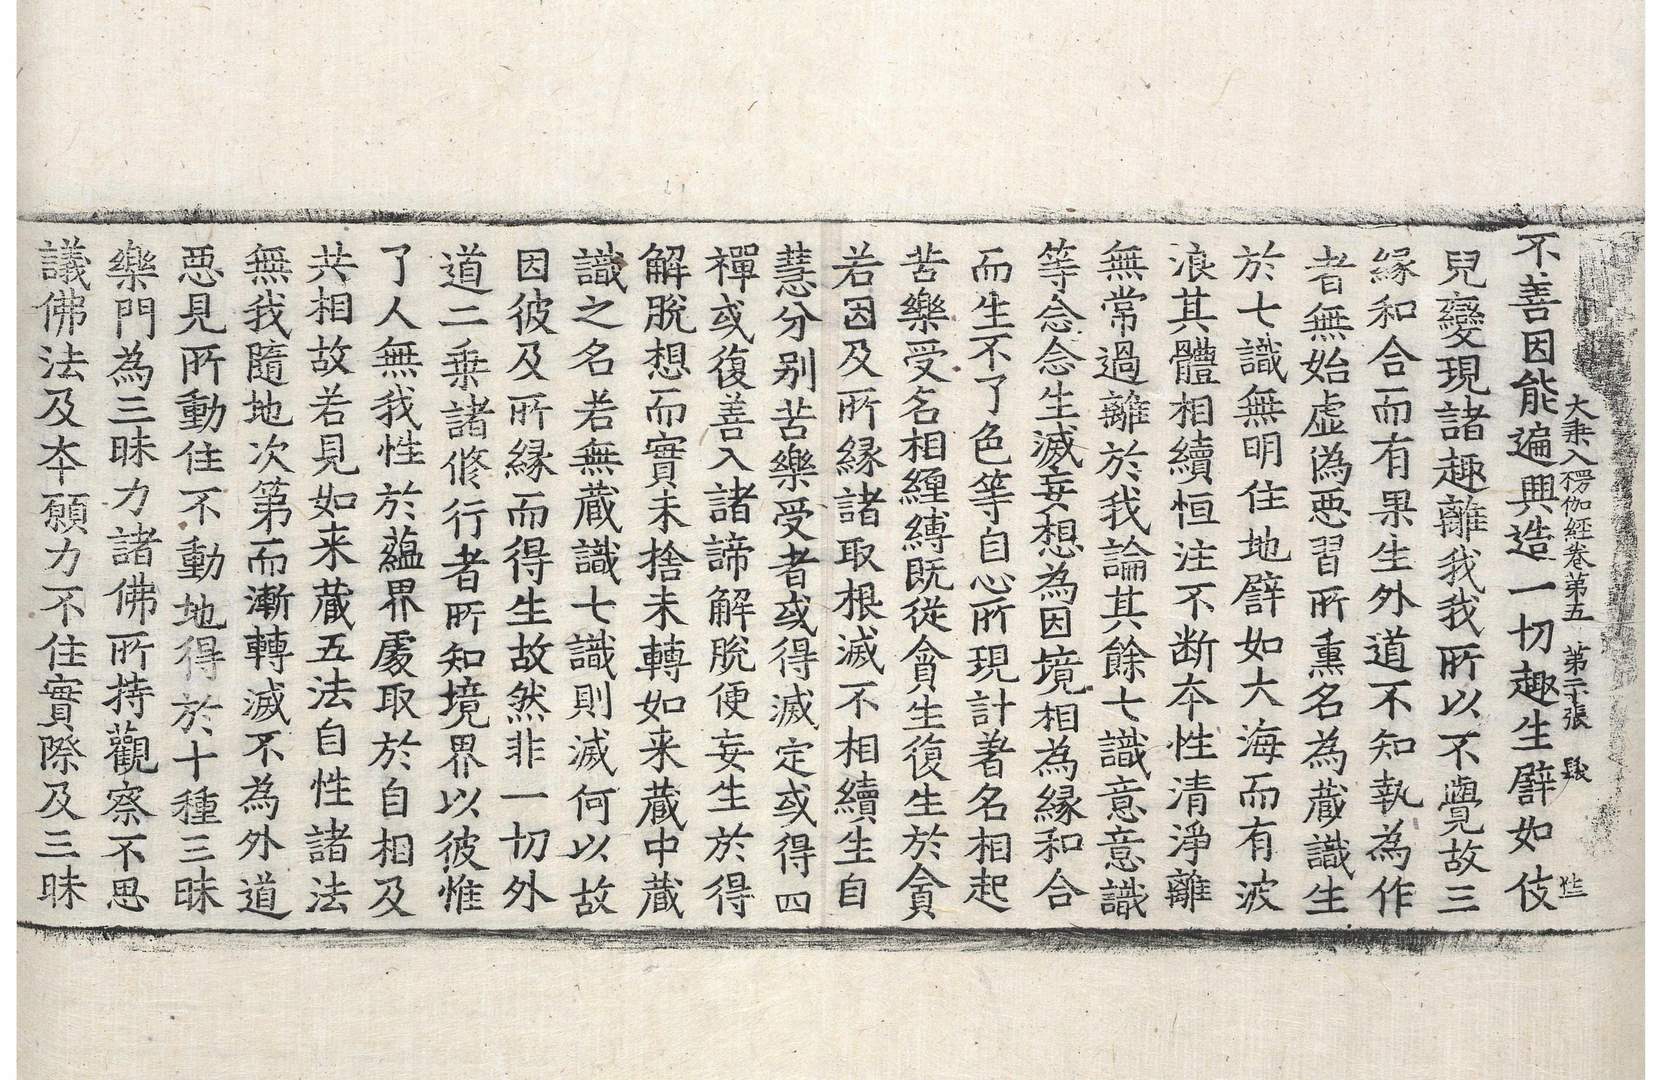 大乗入楞伽經卷第五 第二十張 髮
不善因能遍興造一切趣生譬如伎
兒變現諸趣離我我所以不覺故三
縁和合而有果生外道不知執為作
者無始虛偽惡習所熏名為藏識生
於七識無明住地譬如大海而有波
浪其體相續恒注不断本性清淨離
無常過離於我論其餘七識意意識
等念念生滅妄想為因境相為縁和合
而生不了色等自心所現計著名相起
苦樂受名相纏縛既從貪生復生於貪
若因及所縁諸取根滅不相續生自
慧分别苦樂受者或得滅定或得四
禪或復善入諸諦解脫便妄生於得
解脫想而實未捨未轉如来藏中藏
識之名若無藏識七識則滅何以故
因彼及所縁而得生故然非一切外
道二乗諸修行者所知境界以彼惟
了人無我性於蘊界處取於自相及
共相故若見如来藏五法自性諸法
無我隨地次第而漸轉滅不為外道
惡見所動住不動地得於十種三昧
樂門為三昧力諸佛所持觀察不思
議佛法及本願力不住實際及三昧